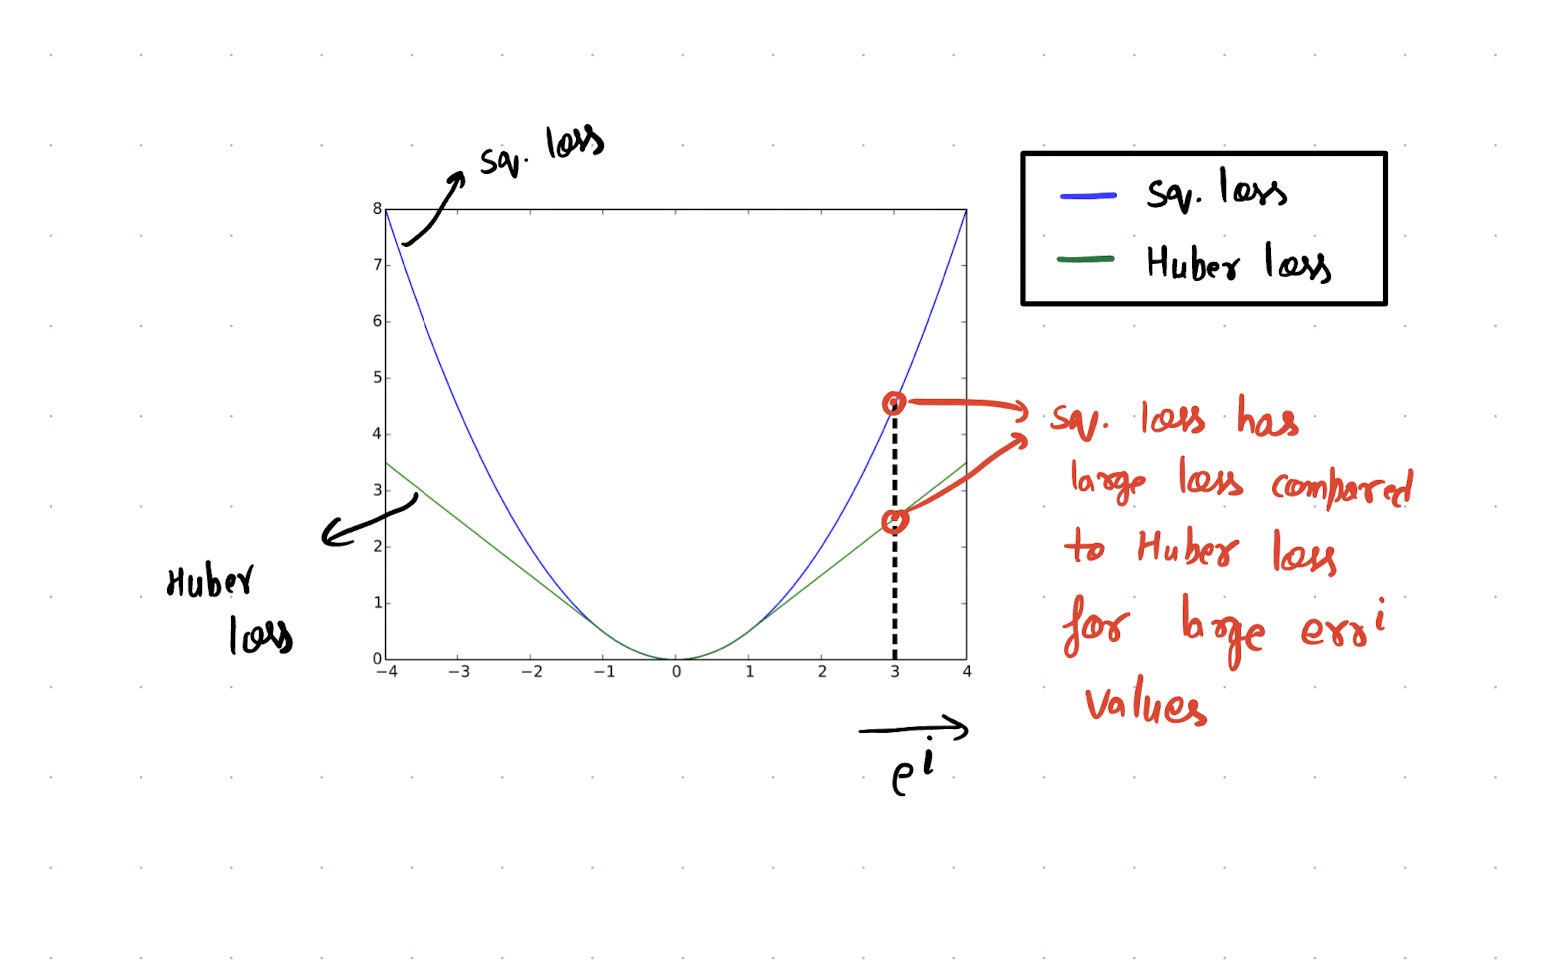 sq. loss
sq. loss
Huber loss
8
7
6
5
4
3
2
1
0
−4 −3 −2 −1 0 1 2 3 4
Huber
loss
sq. loss has
large loss compared
to Huber loss
for large errⁱ
values
eⁱ